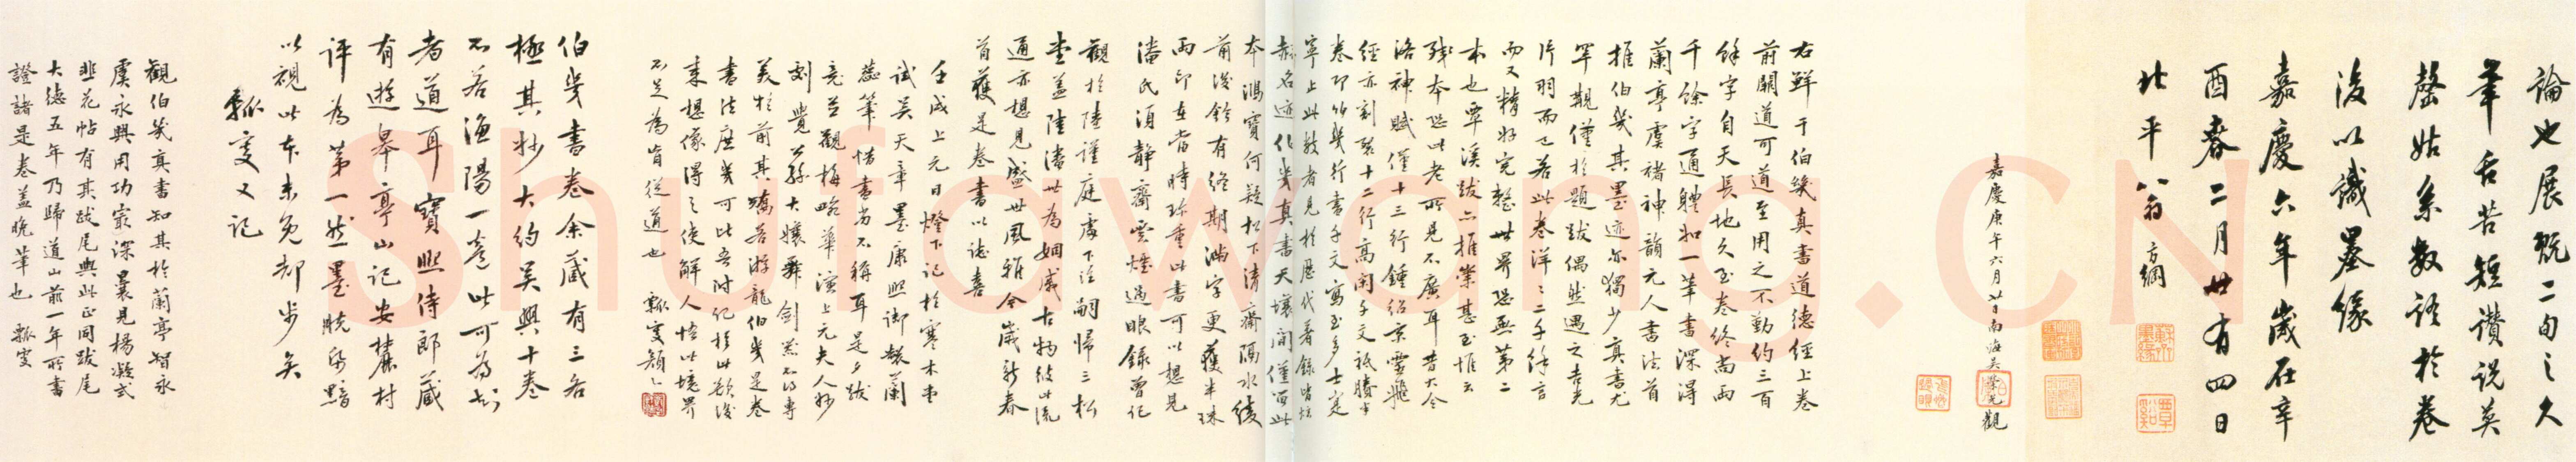 論也展翫二旬之久
筆舌苦短讚説莫
罄姑系數語於卷
後以識墨緣
嘉慶六年歲在辛
酉春二月廿有四日
北平翁方綱
嘉慶庚午六月廿日南海吳榮光觀
右鮮于伯幾真書道德經上卷
前闕道可道至用之不勤約三百
餘字自天長地久至卷終尚兩
千餘字通體如一筆書深得
蘭亭虞褚神韻元人書法首
推伯幾其墨迹尓獨少真書尤
罕觀僅於題跋偶然遇之吉光
片羽而已若此卷洋洋二千餘言
而又精好完整世界恐無第二
本也覃溪跋亦推崇甚至惟云
殘本恐此老所見不廣耳昔大令
洛神賦僅十三行鍾紹京靈飛
經亦割裂十二行高閑千文祇賸半
卷即伯幾行書千文寫至多士寔
寧止此數者見於歷代著錄皆煊
赫名迹伯幾真書天壤間僅留此
本鴻寶何疑松下清齋隔水綾
前後鈐有終期滿字更獲半珠
兩印在當時珍重此書可以想見
潘氏須靜齋雲煙過眼錄曾記
觀於陸謹庭處下注嗣歸三松
堂蓋陸潘世為姻戚古物彼此流
通亦想見盛世風雅今歲新春
首獲是卷書以誌喜
壬戌上元日燈下記於寒木堂
試吳天章墨康熙御製蘭
蕊筆惜書劣不稱耳是夕跋
竟並觀梅畹華演上元夫人妙
劇覺公孫大孃舞劍器不得專
美於前其矯若游龍伯幾是卷
書法庶幾可比吾附記於此欲後
来想像得之使解人悟此境界
不足為盲從道也 瓢叟顏
伯幾書卷余藏有三各
極其妙大約吳興十卷
不若漁陽一卷此可為知
者道耳寶熙侍郎藏
有遊皋亭山記安麓村
評為第一然墨脱帋黯
以視此本未免却步矣
瓢叟又記
觀伯幾真書知其於蘭亭智永
虞永興用功㝡深曩見楊凝式
韭花帖有其跋尾與此正同跋尾
大德五年乃歸道山前一年所書
證諸是卷蓋晚筆也 瓢叟
Shufawang.CN